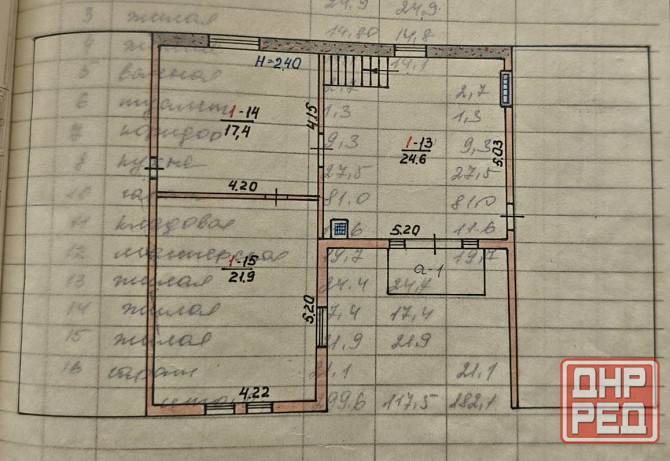 3 жилая 24.9 24.9
4 жилая 14.80 14.8
5 ванная 14.1
H=2.40
6 туалет 2.7 2.7
1-14
17,4
4.15
1.3 1.3
7 коридор 9.3 9.3
1-13
24.6
5.03
8 кухня 27,5 27,5
4.20
10 81.0 81.0
11 кладовая 11.6
5.20
12 19,7 19,7
1-15
21.9
а-1
13 жилая 24.4 24,4
14 жилая 17,4 17,4
5.20
15 жилая 21.9 21.9
16 гараж 21.1 21,1
4.22
итого 299.6 117,5 182,1
ДНР
РЕД